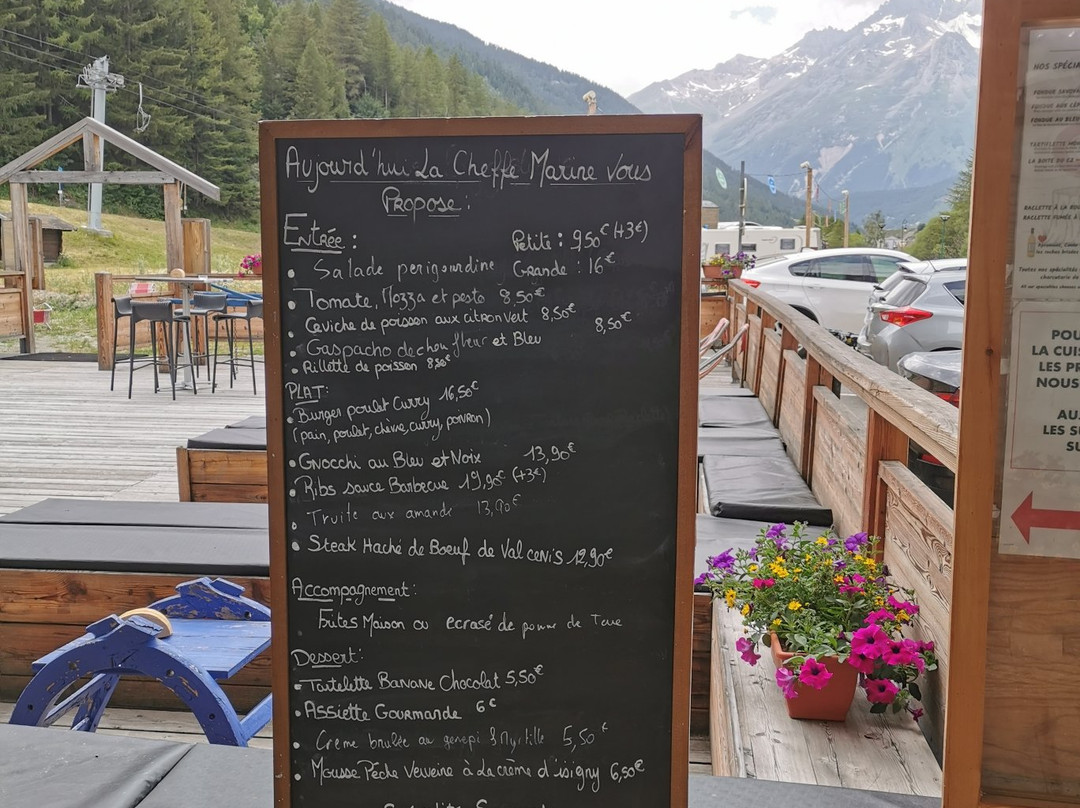 Aujourd'hui La Cheffe Marine vous
Propose :
Entrée :
Petite : 9,50€ (+3€)
• Salade perigourdine Grande : 16€
• Tomate, Mozza et pesto 8,50€
• Ceviche de poisson aux citron vert 8,50€
• Gaspacho de chou fleur et Bleu 8,50€
• Rillette de poisson 8,50€
PLAT :
• Burger poulet Curry 16,50€
(pain, poulet, chèvre, curry, poivron)
• Gnocchi au Bleu et Noix 13,90€
• Ribs sauce Barbecue 19,90€ (+3€)
• Truite aux amande 13,90€
• Steak Haché de Boeuf de Val cenis 12,90€
Accompagnement :
Frites Maison ou ecrasé de pomme de Terre
Dessert :
• Tartelette Banane Chocolat 5,50€
• Assiette Gourmande 6€
• Crème brulée au genepi & Myrtille 5,50€
• Mousse Pêche Verveine à la crème d'isigny 6,50€
NOS SPÉCI
FONDUE SAVOYA
FONDUE AUX CÈP
FONDUE AU BLEU
TARTIFLETTE
LA BOITE DU
RACLETTE À LA
RACLETTE FUMÉE
Toutes nos spécialités
charcuterie
POU
LA CUIS
LES PR
NOUS
AU
LES S
SU